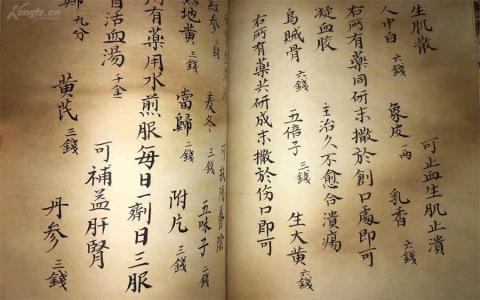 生肌散 可止血生肌止潰
人中白 六錢 象皮 一两 乳香 六錢
右所有藥同研末撒於創口處即可
凝血胶 主治久不愈合潰瘍
烏賊骨 六錢 五倍子 三錢 生大黄 六錢
右所有藥共研成末撒於伤口即可
可扶陽養陰
参 三錢 麦冬 三錢 五味子 二錢
地黄 三錢 當歸 二錢 附片 三錢
所有藥用水煎服每日一劑日三服
活血湯 千金 可補益肝腎
歸 九分 黄芪 三錢 丹参 三錢